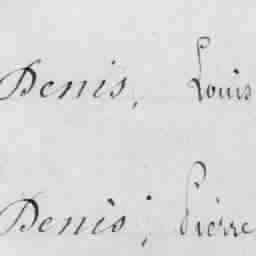 Denis, Louis
Denis, Pierre